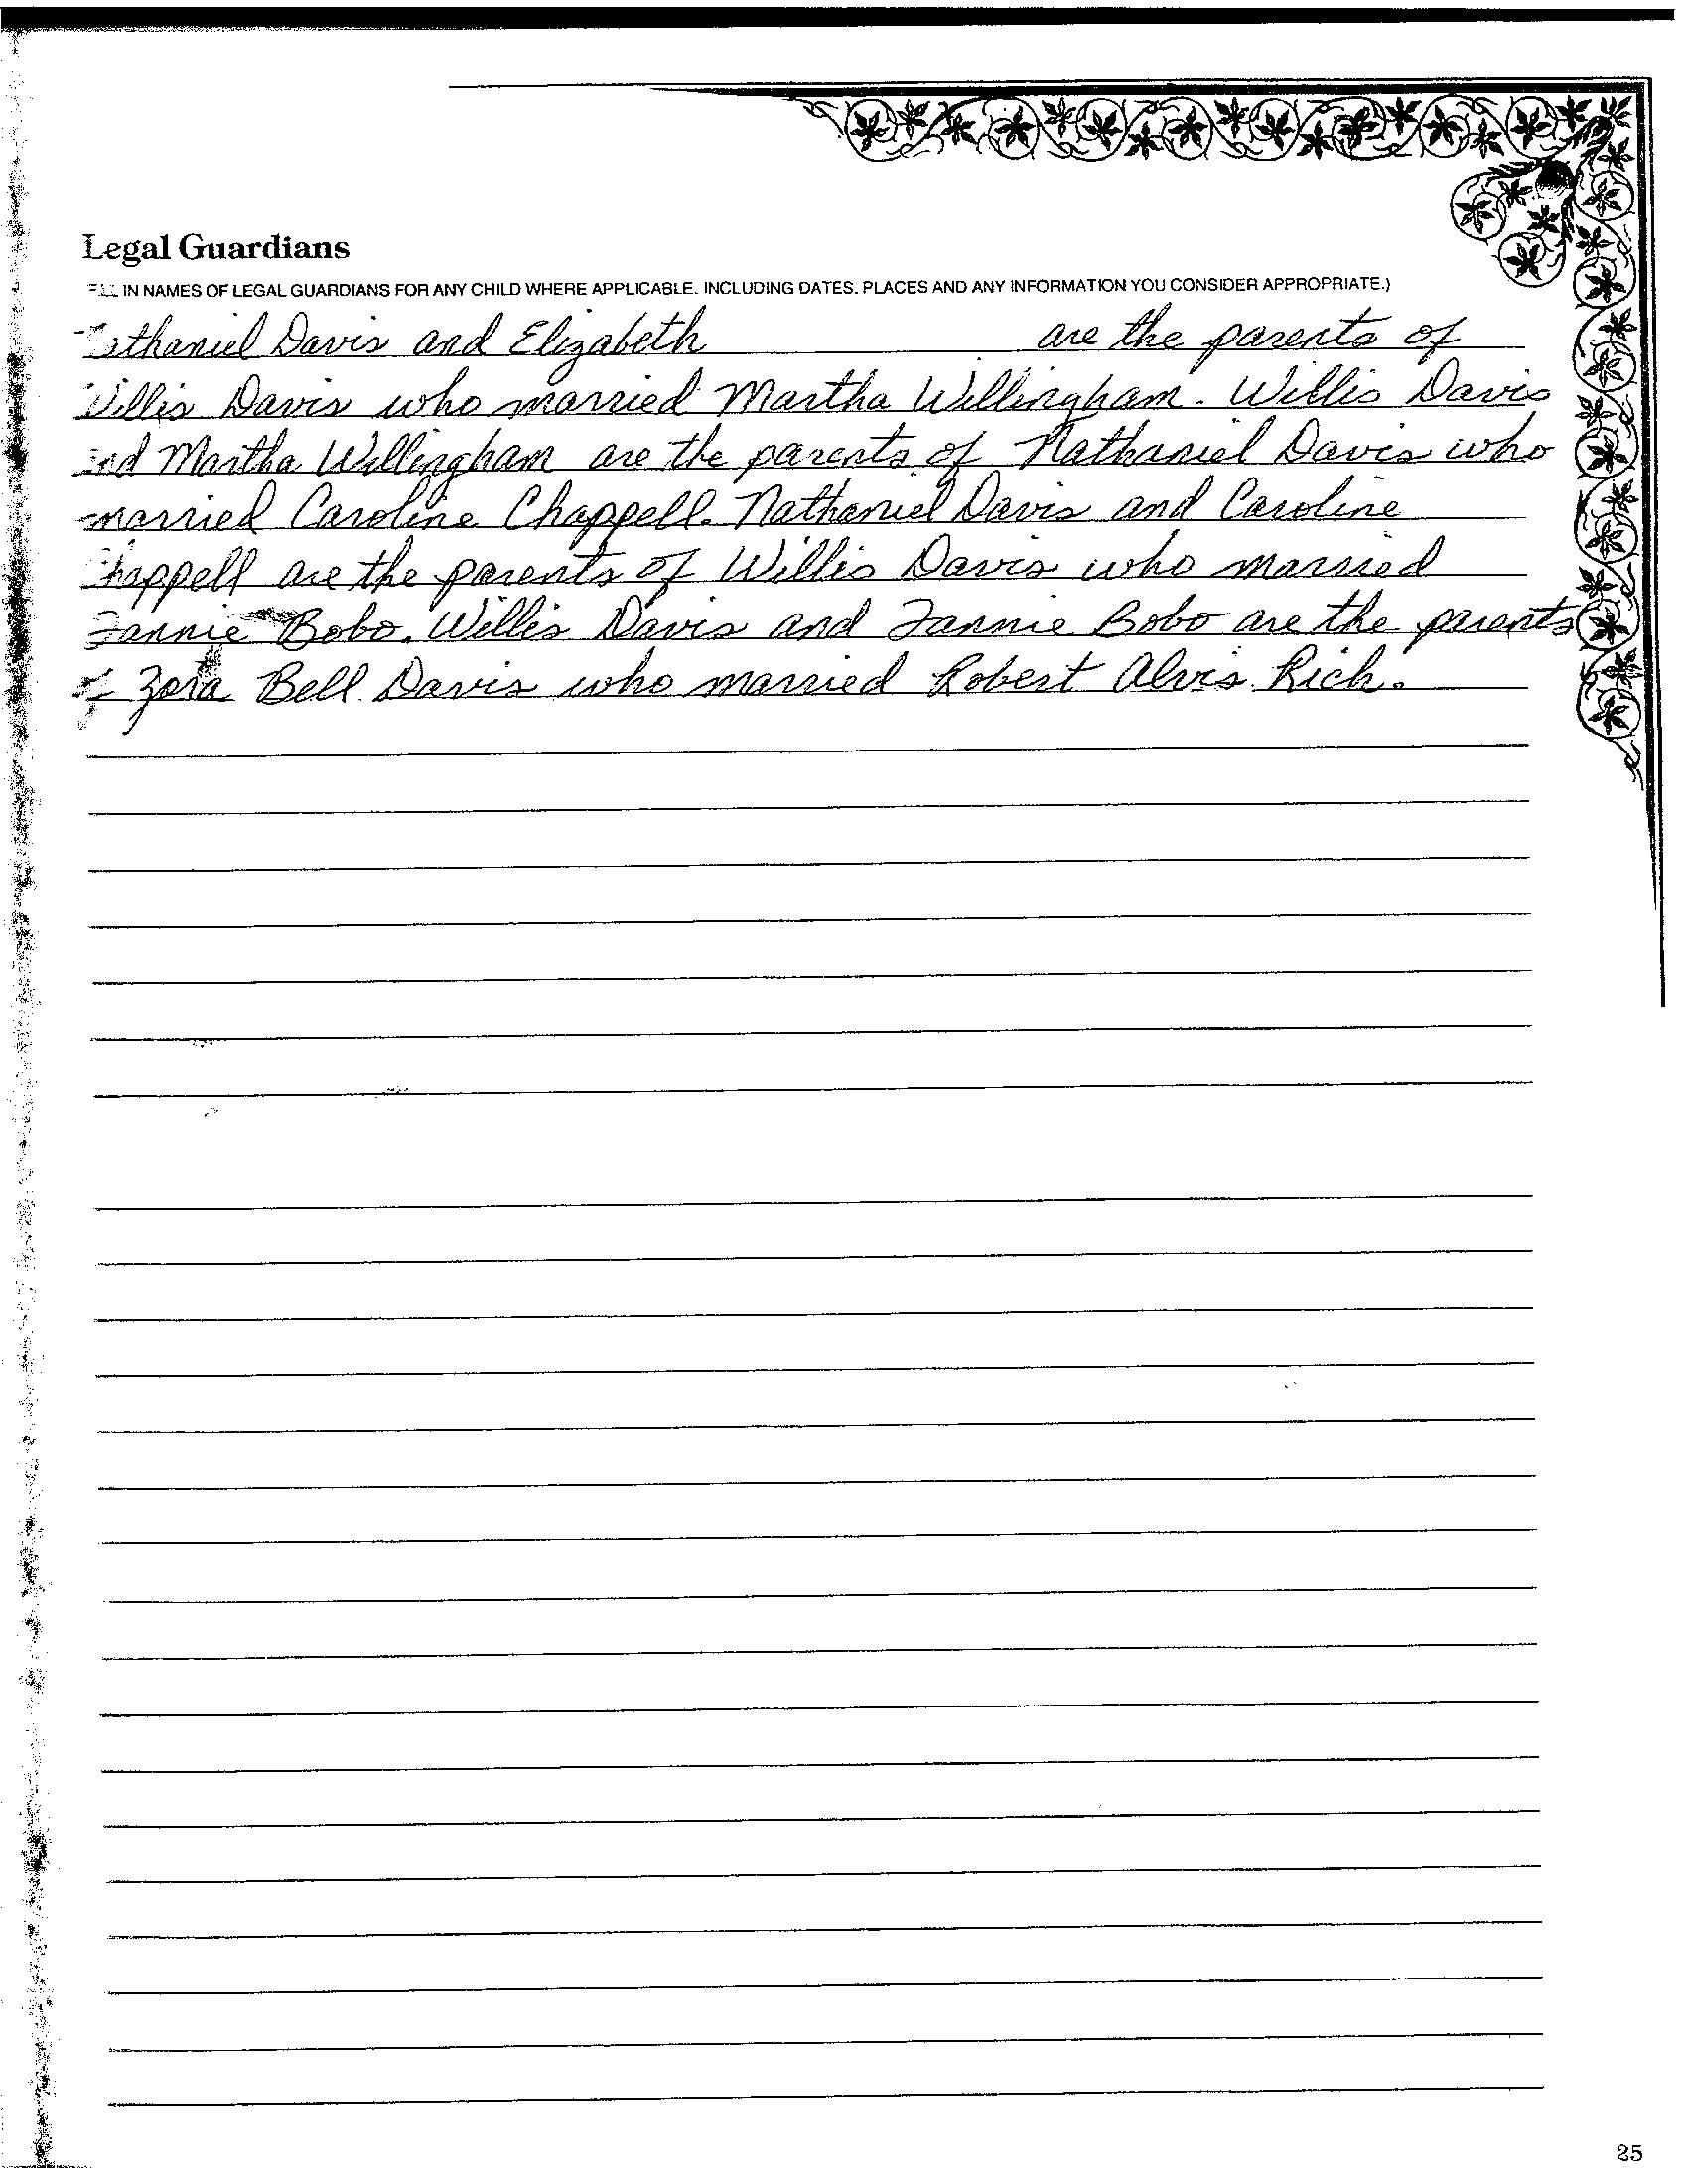 Legal Guardians
FILL IN NAMES OF LEGAL GUARDIANS FOR ANY CHILD WHERE APPLICABLE. INCLUDING DATES. PLACES AND ANY INFORMATION YOU CONSIDER APPROPRIATE.)
Nathaniel Davis and Elizabeth are the parents of
Willis Davis who married Martha Willingham. Willis Davis
and Martha Willingham are the parents of Nathaniel Davis who
married Caroline Chappell. Nathaniel Davis and Caroline
Chappell are the parents of Willis Davis who married
Fannie Bobo. Willis Davis and Fannie Bobo are the parents
of Zora Bell Davis who married Robert Alvis Rich.
25